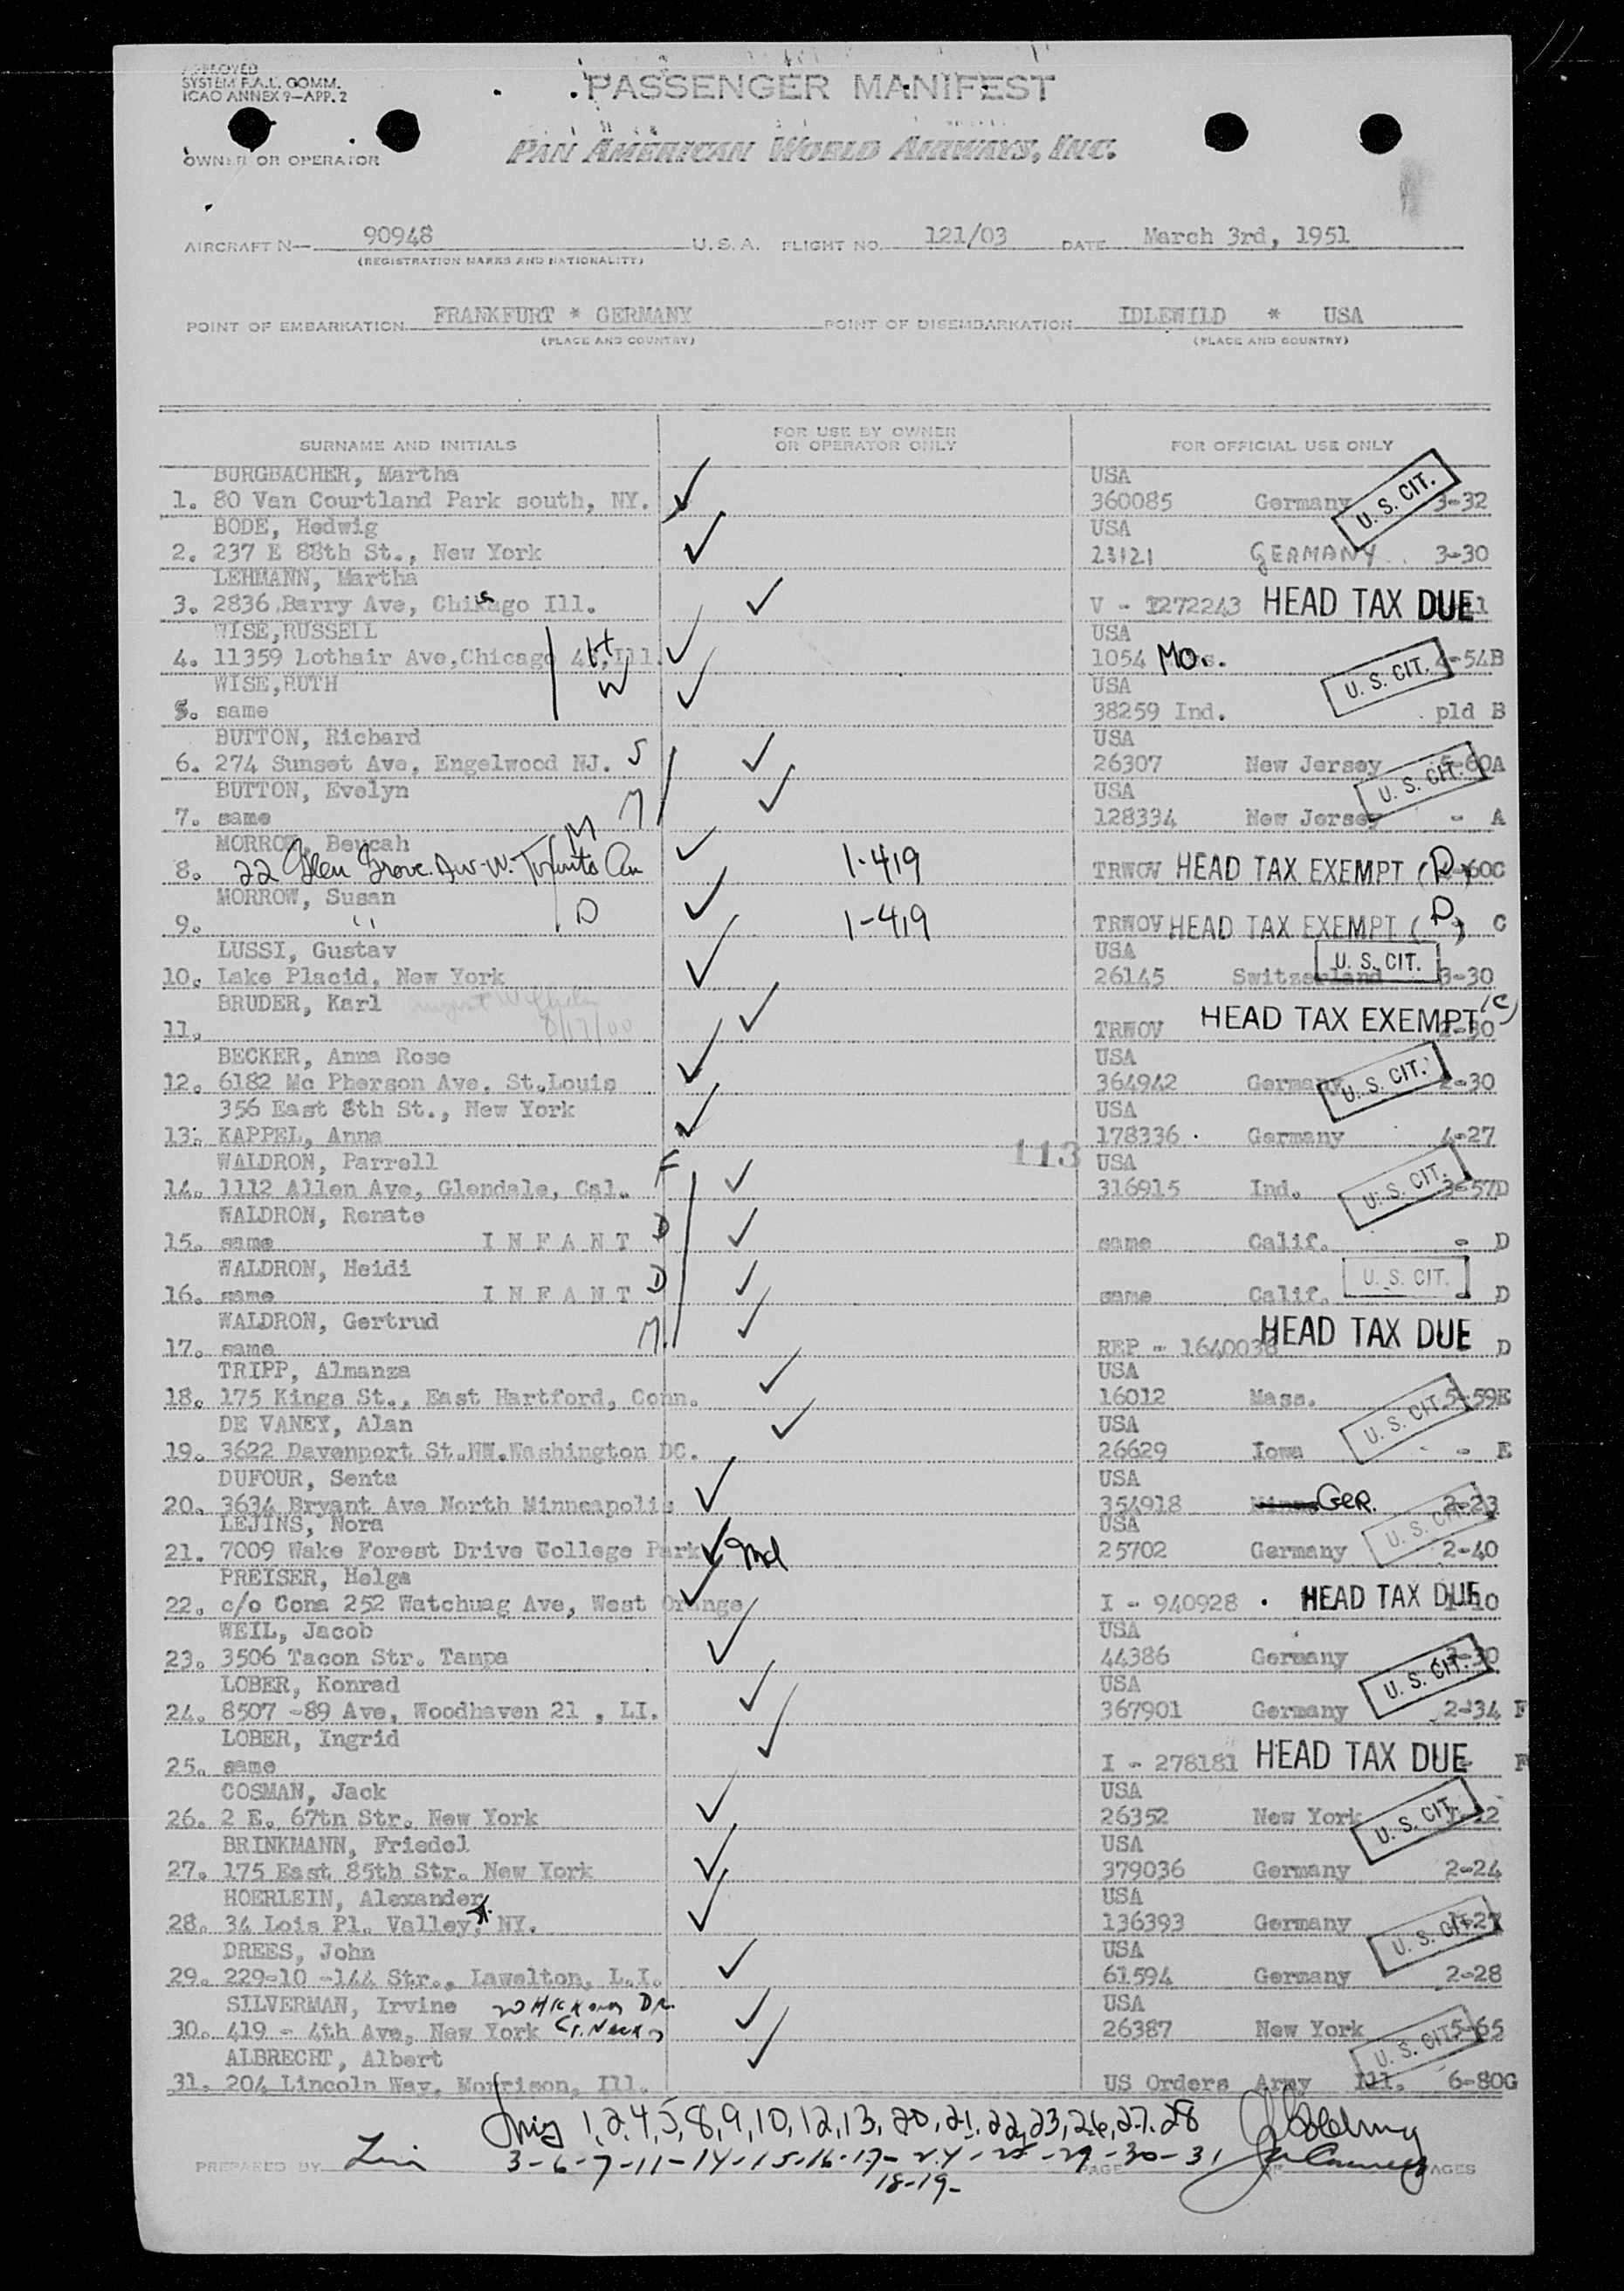 APPROVED
SYSTEM F.A.L. COMM.
ICAO ANNEX 9—APP. 2
PASSENGER MANIFEST
OWNER OR OPERATOR
PAN AMERICAN WORLD AIRWAYS, INC.
AIRCRAFT N— 90948 U. S. A. FLIGHT NO. 121/03 DATE March 3rd, 1951
(REGISTRATION MARKS AND NATIONALITY)
POINT OF EMBARKATION FRANKFURT * GERMANY POINT OF DISEMBARKATION IDLEWILD * USA
(PLACE AND COUNTRY) (PLACE AND COUNTRY)
SURNAME AND INITIALS FOR USE BY OWNER OR OPERATOR ONLY FOR OFFICIAL USE ONLY
BURGBACHER, Martha USA
1. 80 Van Courtland Park south, NY. 360085 Germany U. S. CIT. 3-32
BODE, Hedwig USA
2. 237 E 88th St., New York 23121 GERMANY 3-30
LEHMANN, Martha
3. 2836 Barry Ave, Chikago Ill. V - 1272243 HEAD TAX DUE
WISE,RUSSELL H USA
4. 11359 Lothair Ave,Chicago 43,Ill. 1054 Mo. U. S. CIT. 4-54B
WISE,RUTH W USA
5. same 38259 Ind. pld B
BUTTON, Richard USA
6. 274 Sunset Ave, Engelwood NJ. S 26307 New Jersey U. S. CIT. 5-60A
BUTTON, Evelyn USA
7. same M 128334 New Jersey - A
MORROW, Beucah M
8. 22 Glen Grove. Av. W. Toronto Can 1-419 TRWOV HEAD TAX EXEMPT (D) -60C
MORROW, Susan
9. " D 1-419 TRWOV HEAD TAX EXEMPT (D) C
LUSSI, Gustav USA
10. Lake Placid, New York 26145 Switzerland U. S. CIT. 3-30
BRUDER, Karl
11. TRWOV HEAD TAX EXEMPT (C) 2-30
BECKER, Anna Rose USA
12. 6182 Mc Pherson Ave, St.Louis 364942 Germany U. S. CIT. 2-30
356 East 8th St., New York USA
13. KAPPEL, Anna 178336 Germany 4-27
113
WALDRON, Parrell F USA
14. 1112 Allen Ave, Glendale, Cal. 316915 Ind. U. S. CIT. 3-57D
WALDRON, Renate
15. same INFANT D same Calif. - D
WALDRON, Heidi
16. same INFANT D same Calif. U. S. CIT. - D
WALDRON, Gertrud
17. same M. REP - 1640038 HEAD TAX DUE D
TRIPP, Almanza USA
18. 175 Kings St., East Hartford, Conn. 16012 Mass. U. S. CIT. 5-59E
DE VANEY, Alan USA
19. 3622 Davenport St.NW.Washington DC. 26629 Iowa - E
DUFOUR, Senta USA
20. 3634 Bryant Ave North Minneapolis 354918 GER. 2-23
LEJINS, Nora USA
21. 7009 Wake Forest Drive College Park Md 25702 Germany U. S. CIT. 2-40
PREISER, Helga
22. c/o Cona 252 Watchuag Ave, West Orange I - 940928 HEAD TAX DUE -10
WEIL, Jacob USA
23. 3506 Tacon Str. Tampa 44386 Germany -30
LOBER, Konrad USA
24. 8507 -89 Ave, Woodhaven 21 , LI. 367901 Germany U. S. CIT. 2-34 F
LOBER, Ingrid
25. same I - 278181 HEAD TAX DUE F
COSMAN, Jack USA
26. 2 E. 67tn Str. New York 26352 New York U. S. CIT. -22
BRINKMANN, Friedel USA
27. 175 East 85th Str. New York 379036 Germany 2-24
HOERLEIN, Alexander USA
28. 34 Lois Pl. Valley, NY. 136393 Germany U. S. CIT. -27
DREES, John USA
29. 229-10 -144 Str., Lawelton, L.I. 61594 Germany 2-28
SILVERMAN, Irvine Hickory Dr. USA
30. 419 - 4th Ave, New York Gt. Neck 26387 New York U. S. CIT. 5-65
ALBRECHT, Albert
31. 204 Lincoln Way, Morrison, Ill. US Orders Army Ill. 6-80G
1,2,4,5,8,9,10,12,13,20,21,22,23,26,27,28
PREPARED BY 3-6-7-11-14-15-16-17-24-25-29-30-31 PAGE OF PAGES
18-19-